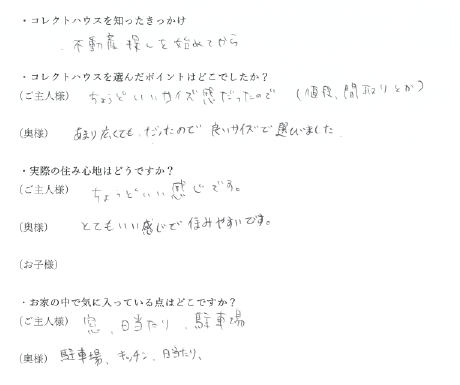 ・コレクトハウスを知ったきっかけ
・不動産探しを始めてから
・コレクトハウスを選んだポイントはどこでしたか？
(ご主人様) ちょうどいいサイズ感だったので (値段、間取りとか)
(奥様) あまり広くても、だったので良いサイズで選びました.
・実際の住み心地はどうですか？
(ご主人様) ちょっどいい感じです。
(奥様) とてもいい感じで住みやすいです。
(お子様)
・お家の中で気に入っている点はどこですか？
(ご主人様) 窓、日当たり、駐車場
(奥様) 駐車場、キッチン、日当たり、